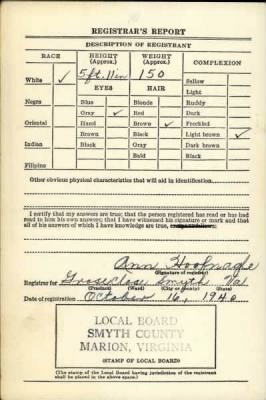 REGISTRAR'S REPORT
DESCRIPTION OF REGISTRANT
RACE HEIGHT (Approx.) WEIGHT (Approx.) COMPLEXION
White ✓ 5 ft. 11 in 150 Sallow
EYES HAIR Light
Negro Blue Blonde Ruddy
Gray ✓ Red Dark
Oriental Hazel Brown ✓ Freckled
Brown Black Light brown ✓
Indian Black Gray Dark brown
Bald Black
Filipino
Other obvious physical characteristics that will aid in identification
I certify that my answers are true; that the person registered has read or has had
read to him his own answers; that I have witnessed his signature or mark and that
all of his answers of which I have knowledge are true,
Ann Hoofnagle
(Signature of registrar)
Registrar for Groseclose Smyth Va.
(Precinct) (Ward) (City or county) (State)
Date of registration October 16, 1940
LOCAL BOARD
SMYTH COUNTY
MARION, VIRGINIA
(STAMP OF LOCAL BOARD)
(The stamp of the Local Board having jurisdiction of the registrant
shall be placed in the above space.)